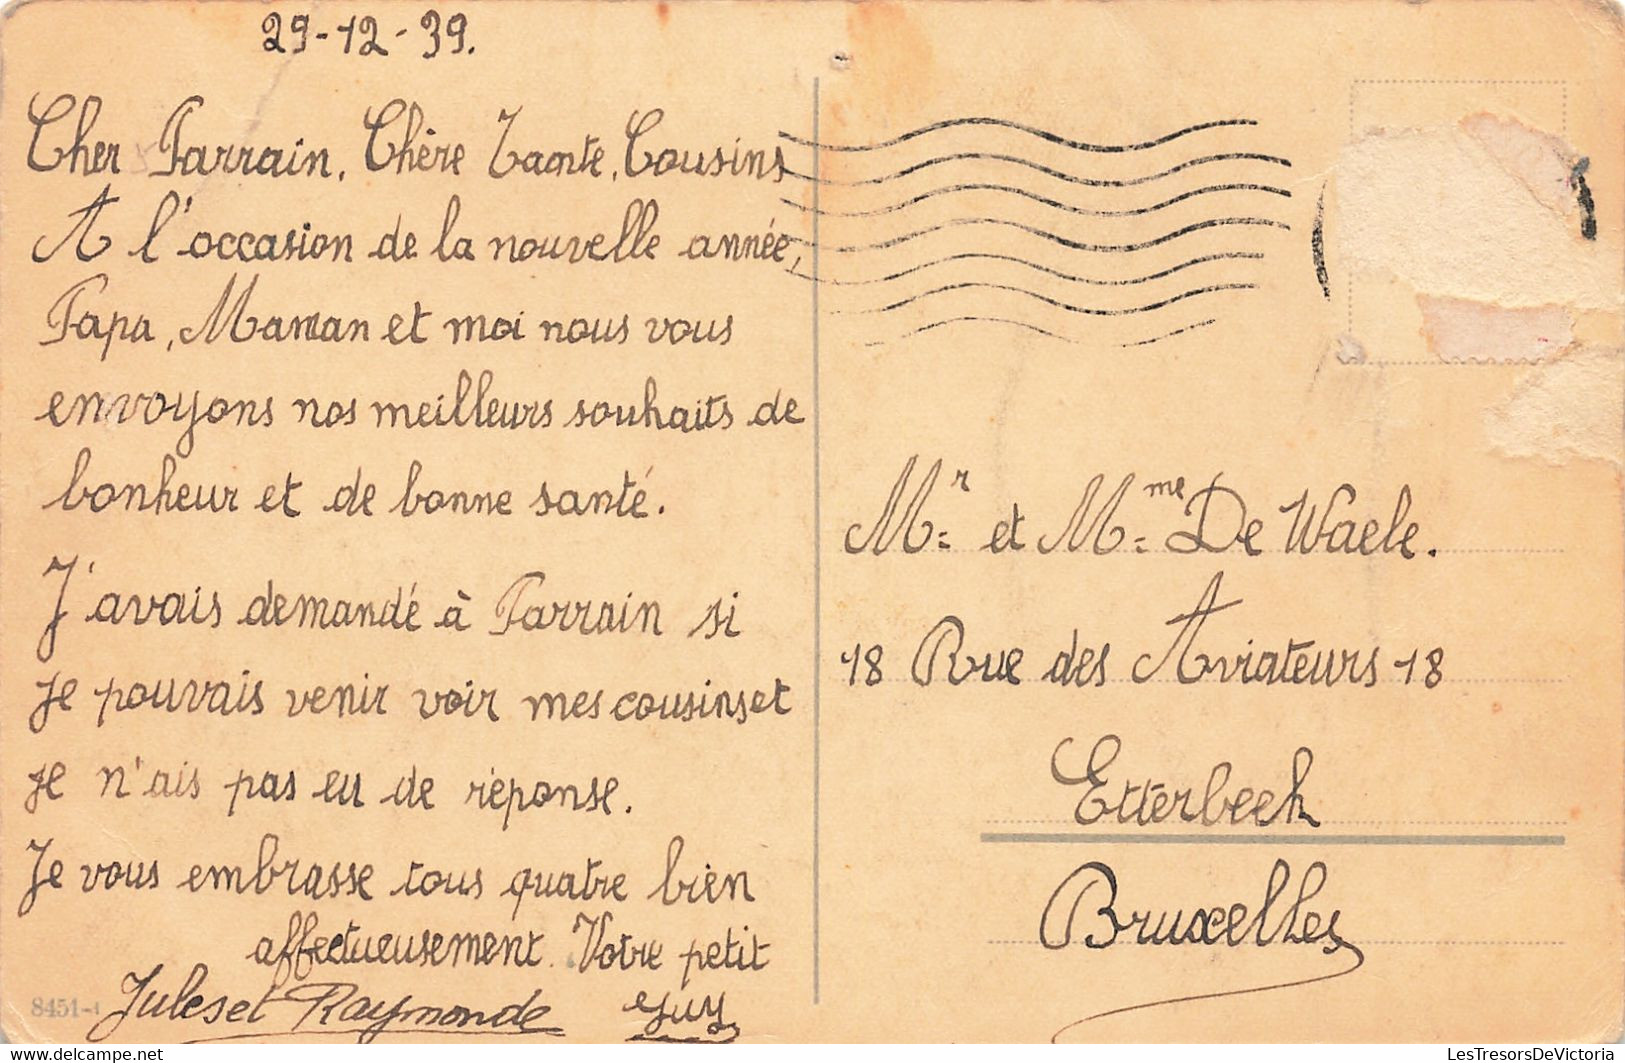 29-12-39.
Cher Parrain, Chère Tante, Cousins
A l'occasion de la nouvelle année,
Papa, Maman et moi nous vous
envoyons nos meilleurs souhaits de
bonheur et de bonne santé.
J'avais demandé à Parrain si
je pouvais venir voir mes cousins et
je n'ais pas eu de réponse.
Je vous embrasse tous quatre bien
affectueusement. Votre petit
Jules et Raymonde Guy
8451-1
Mr et Mme De Waele.
18 Rue des Aviateurs 18
Etterbeek
Bruxelles
LesTresorsDeVictoria | LesTresorsDeVictoria.com
https://www.LesTresorsDeVictoria.com